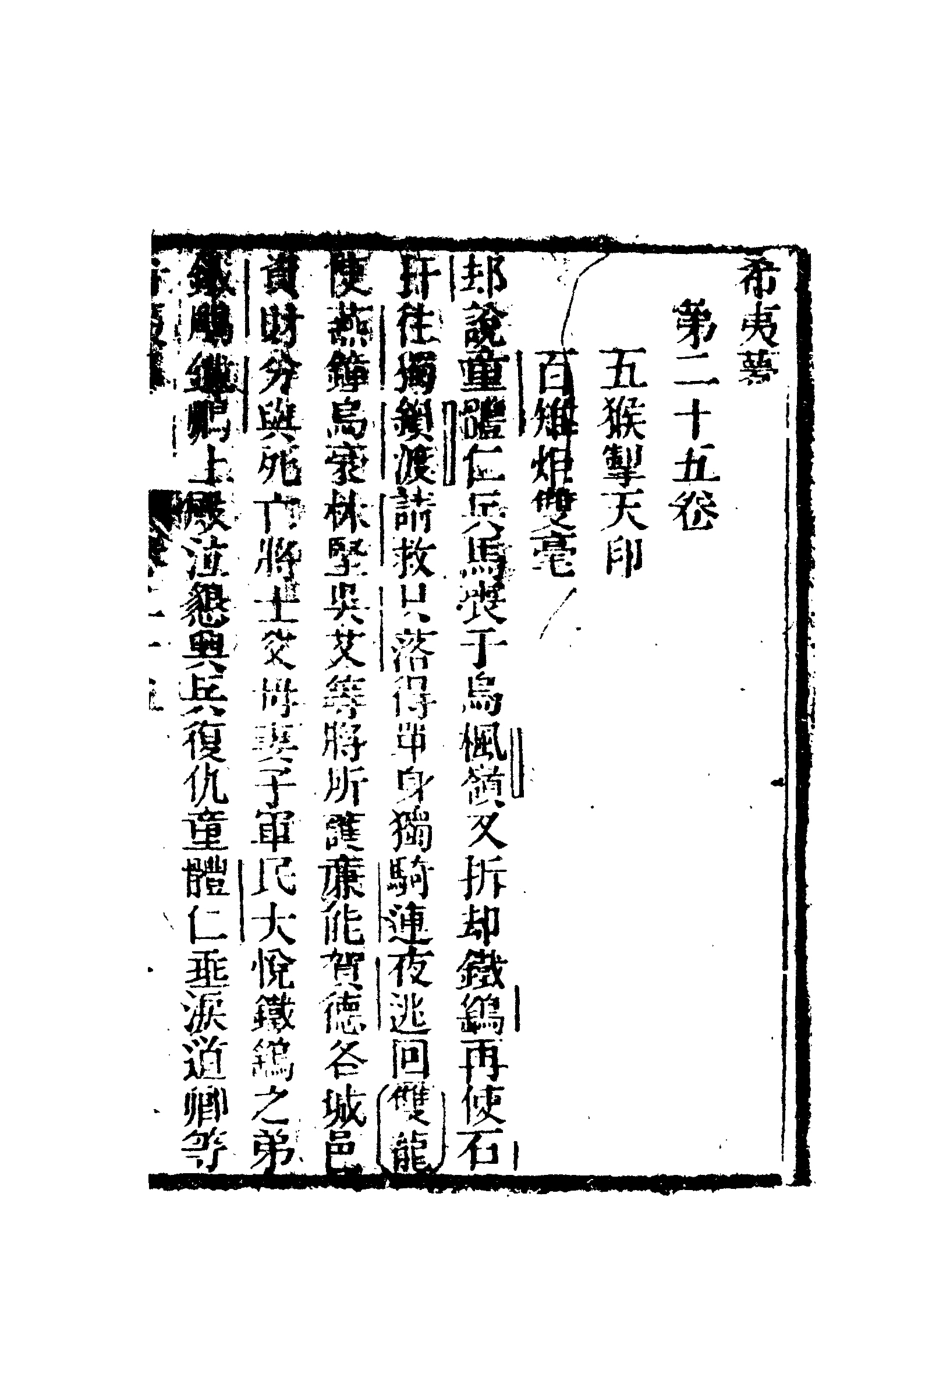 希夷夢
第二十五卷
五猴掣天印
百雉炬雙毫
却說童體仁兵馬喪于烏楓嶺又拆却鐵鎢再使石
玕往獨鎖渡請救只落得單身獨騎連夜逃回雙龍
使燕鐘烏豪林堅吳艾等將所護廉能賀德各城邑
資財分與死亡將士父母妻子軍民大悅鐵鎢之弟
鐵鵰鐵鷴上殿泣懇興兵復仇童體仁垂淚道卿等